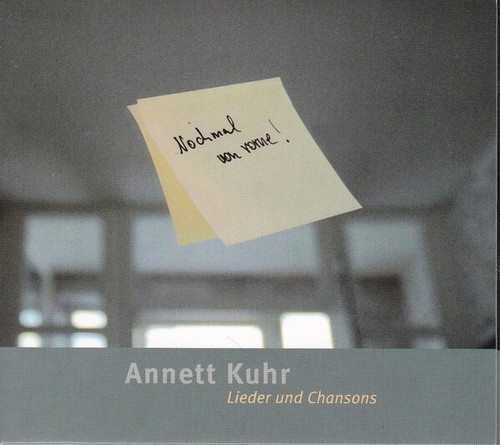 Nochmal
von vorne!
Annett Kuhr
Lieder und Chansons